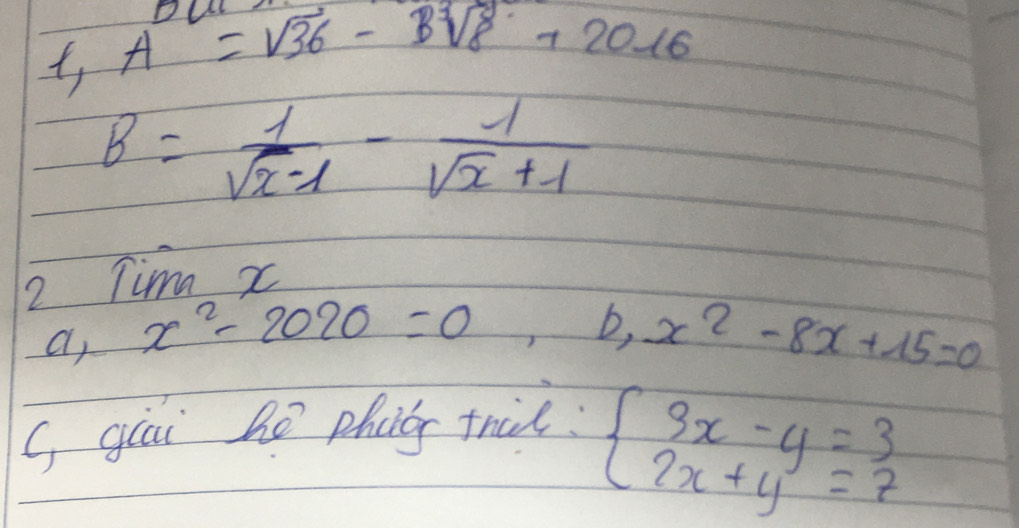 1, A = √36 - 3∛8 + 2016
B = 1/(√x-1) - 1/(√x+1)
2 Tìm x
a, x² - 2020 = 0, b, x² - 8x + 15 = 0
C, giải hệ phương trình: { 3x - y = 3
2x + y = 7